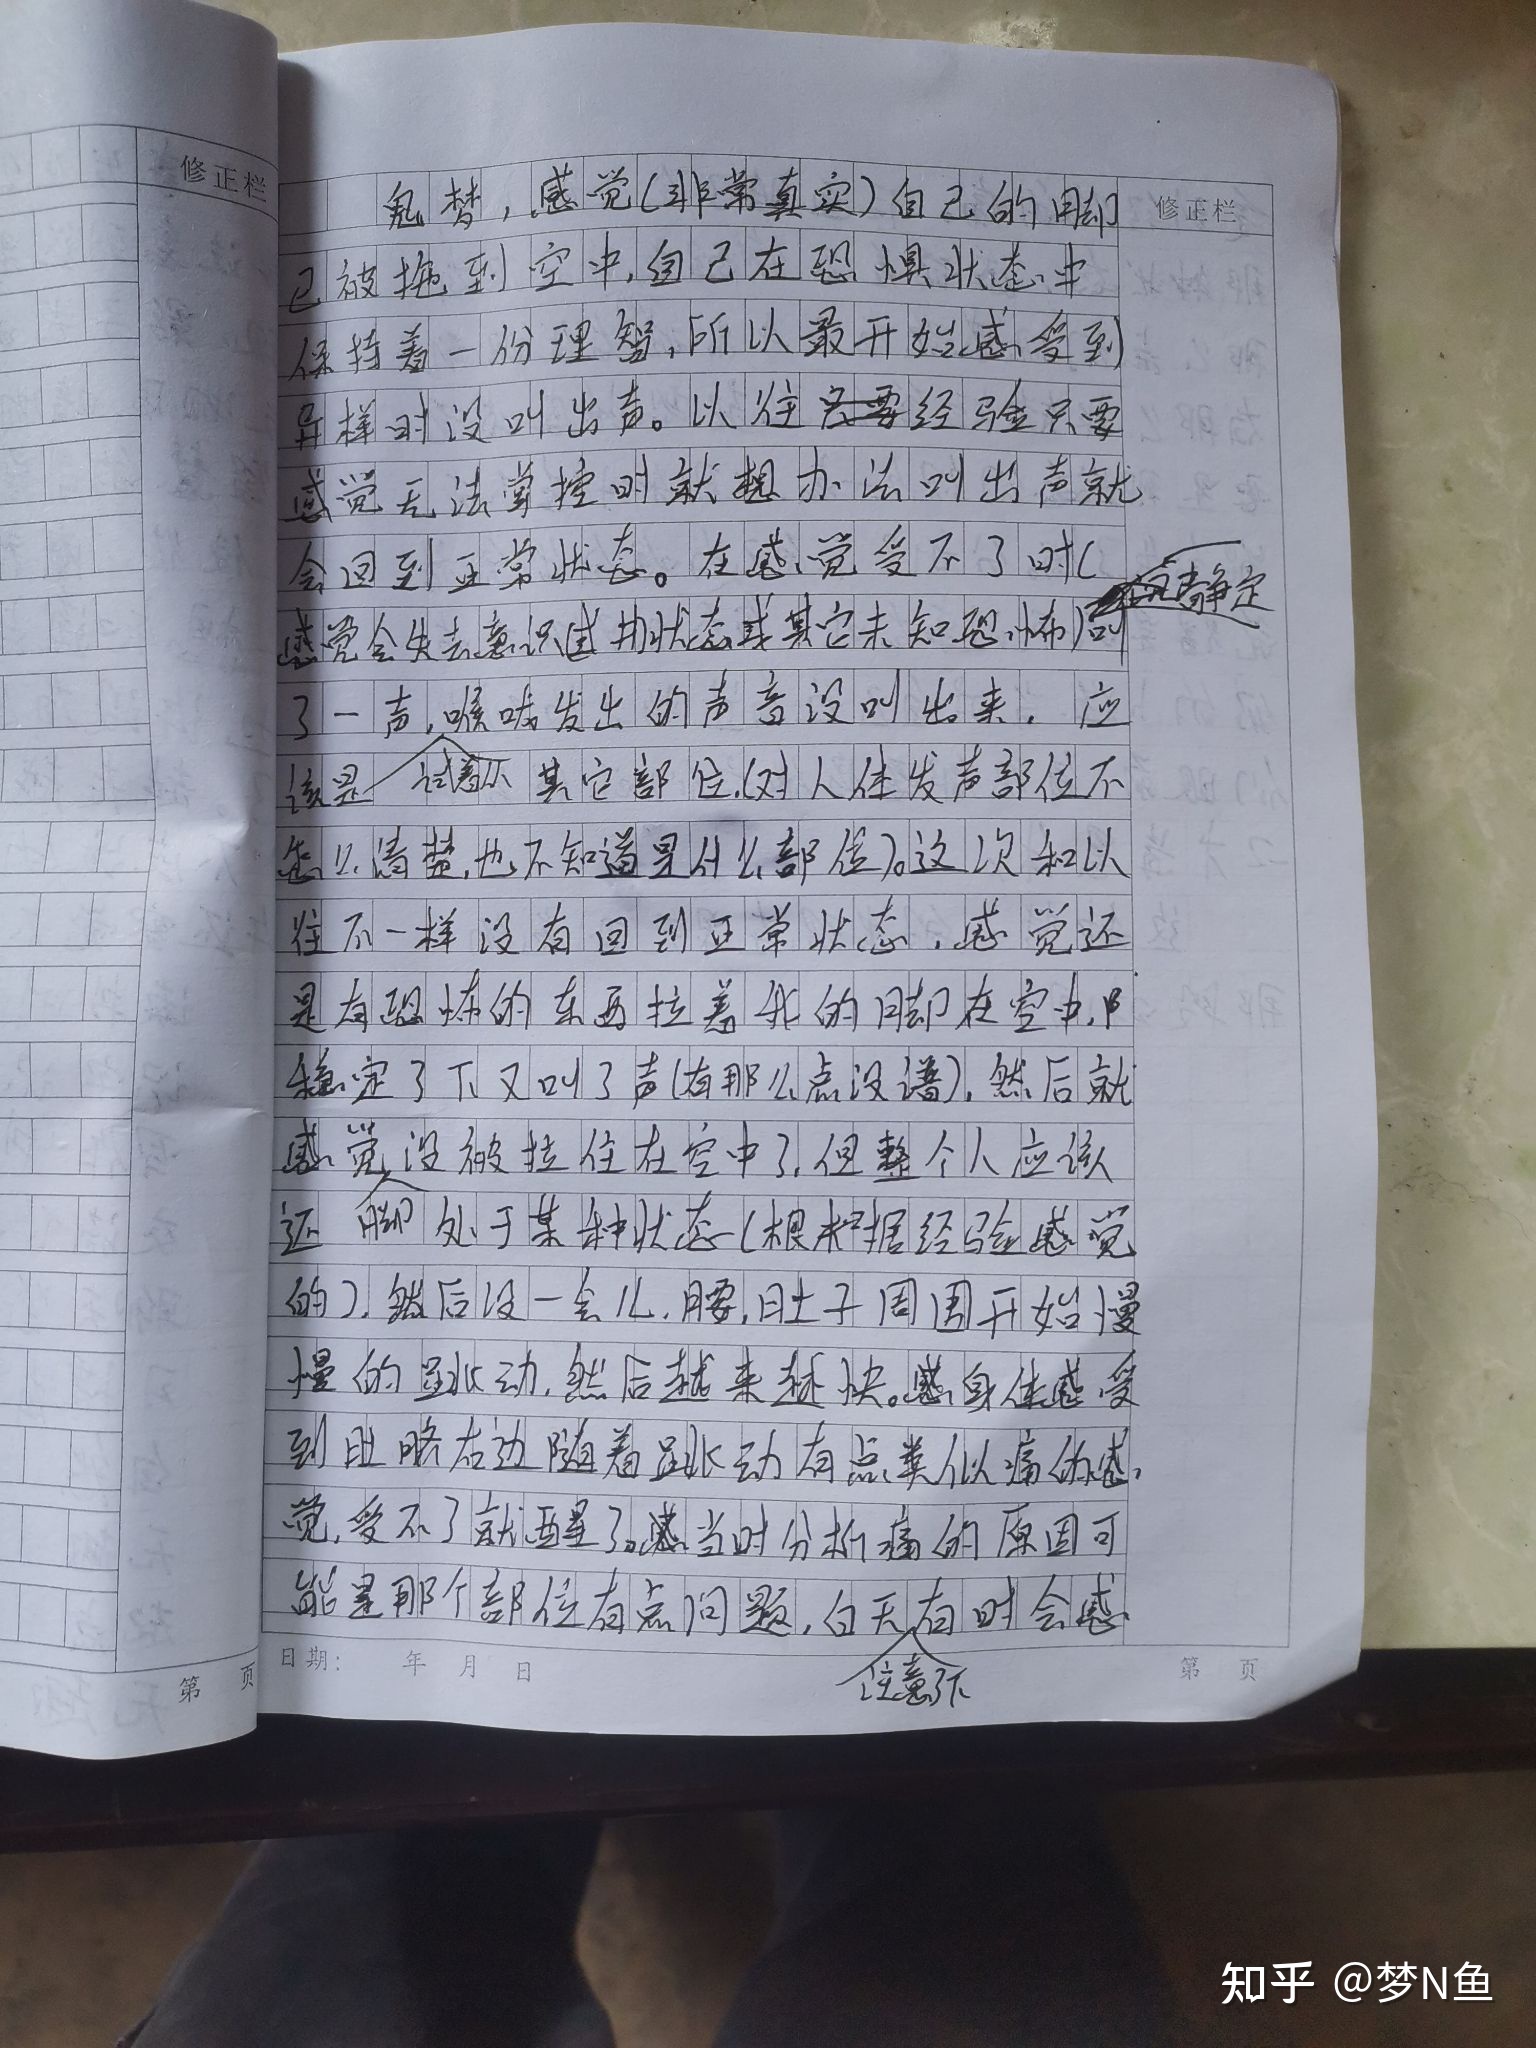 修正栏
修正栏
梦，感觉（非常真实）自己的脚
已被拖到空中，自己在恐惧状态中
保持着一份理智，所以最开始感受到
异样时没叫出声。以往只要经验只要
感觉无法掌控时就想办法叫出声就
会回到正常状态。在感觉受不了时（
静定
感觉会失去意识或其它未知恐怖）叫
了一声，喉咙发出的声音没叫出来，应
该是试着下其它部位（对人体发声部位不
怎么清楚，也不知道是什么部位）。这次和以
往不一样没有回到正常状态，感觉还
是有恐怖的东西拉着我的脚在空中，
稳定了下又叫了声（有那么点没谱），然后就
感觉没被拉住在空中了，但整个人应该
还脚处于某种状态（根据经验感觉
的），然后没一会儿，腰，肚子周围开始慢
慢的跳动，然后越来越快。感身体感受
到肚略右边随着跳动有点类似痛的感
觉，受不了就醒了。感当时分析痛的原因可
能是那个部位有点问题，白天有时会感
注意下
日期： 年 月 日
第 页
第 页
知乎 @梦N鱼